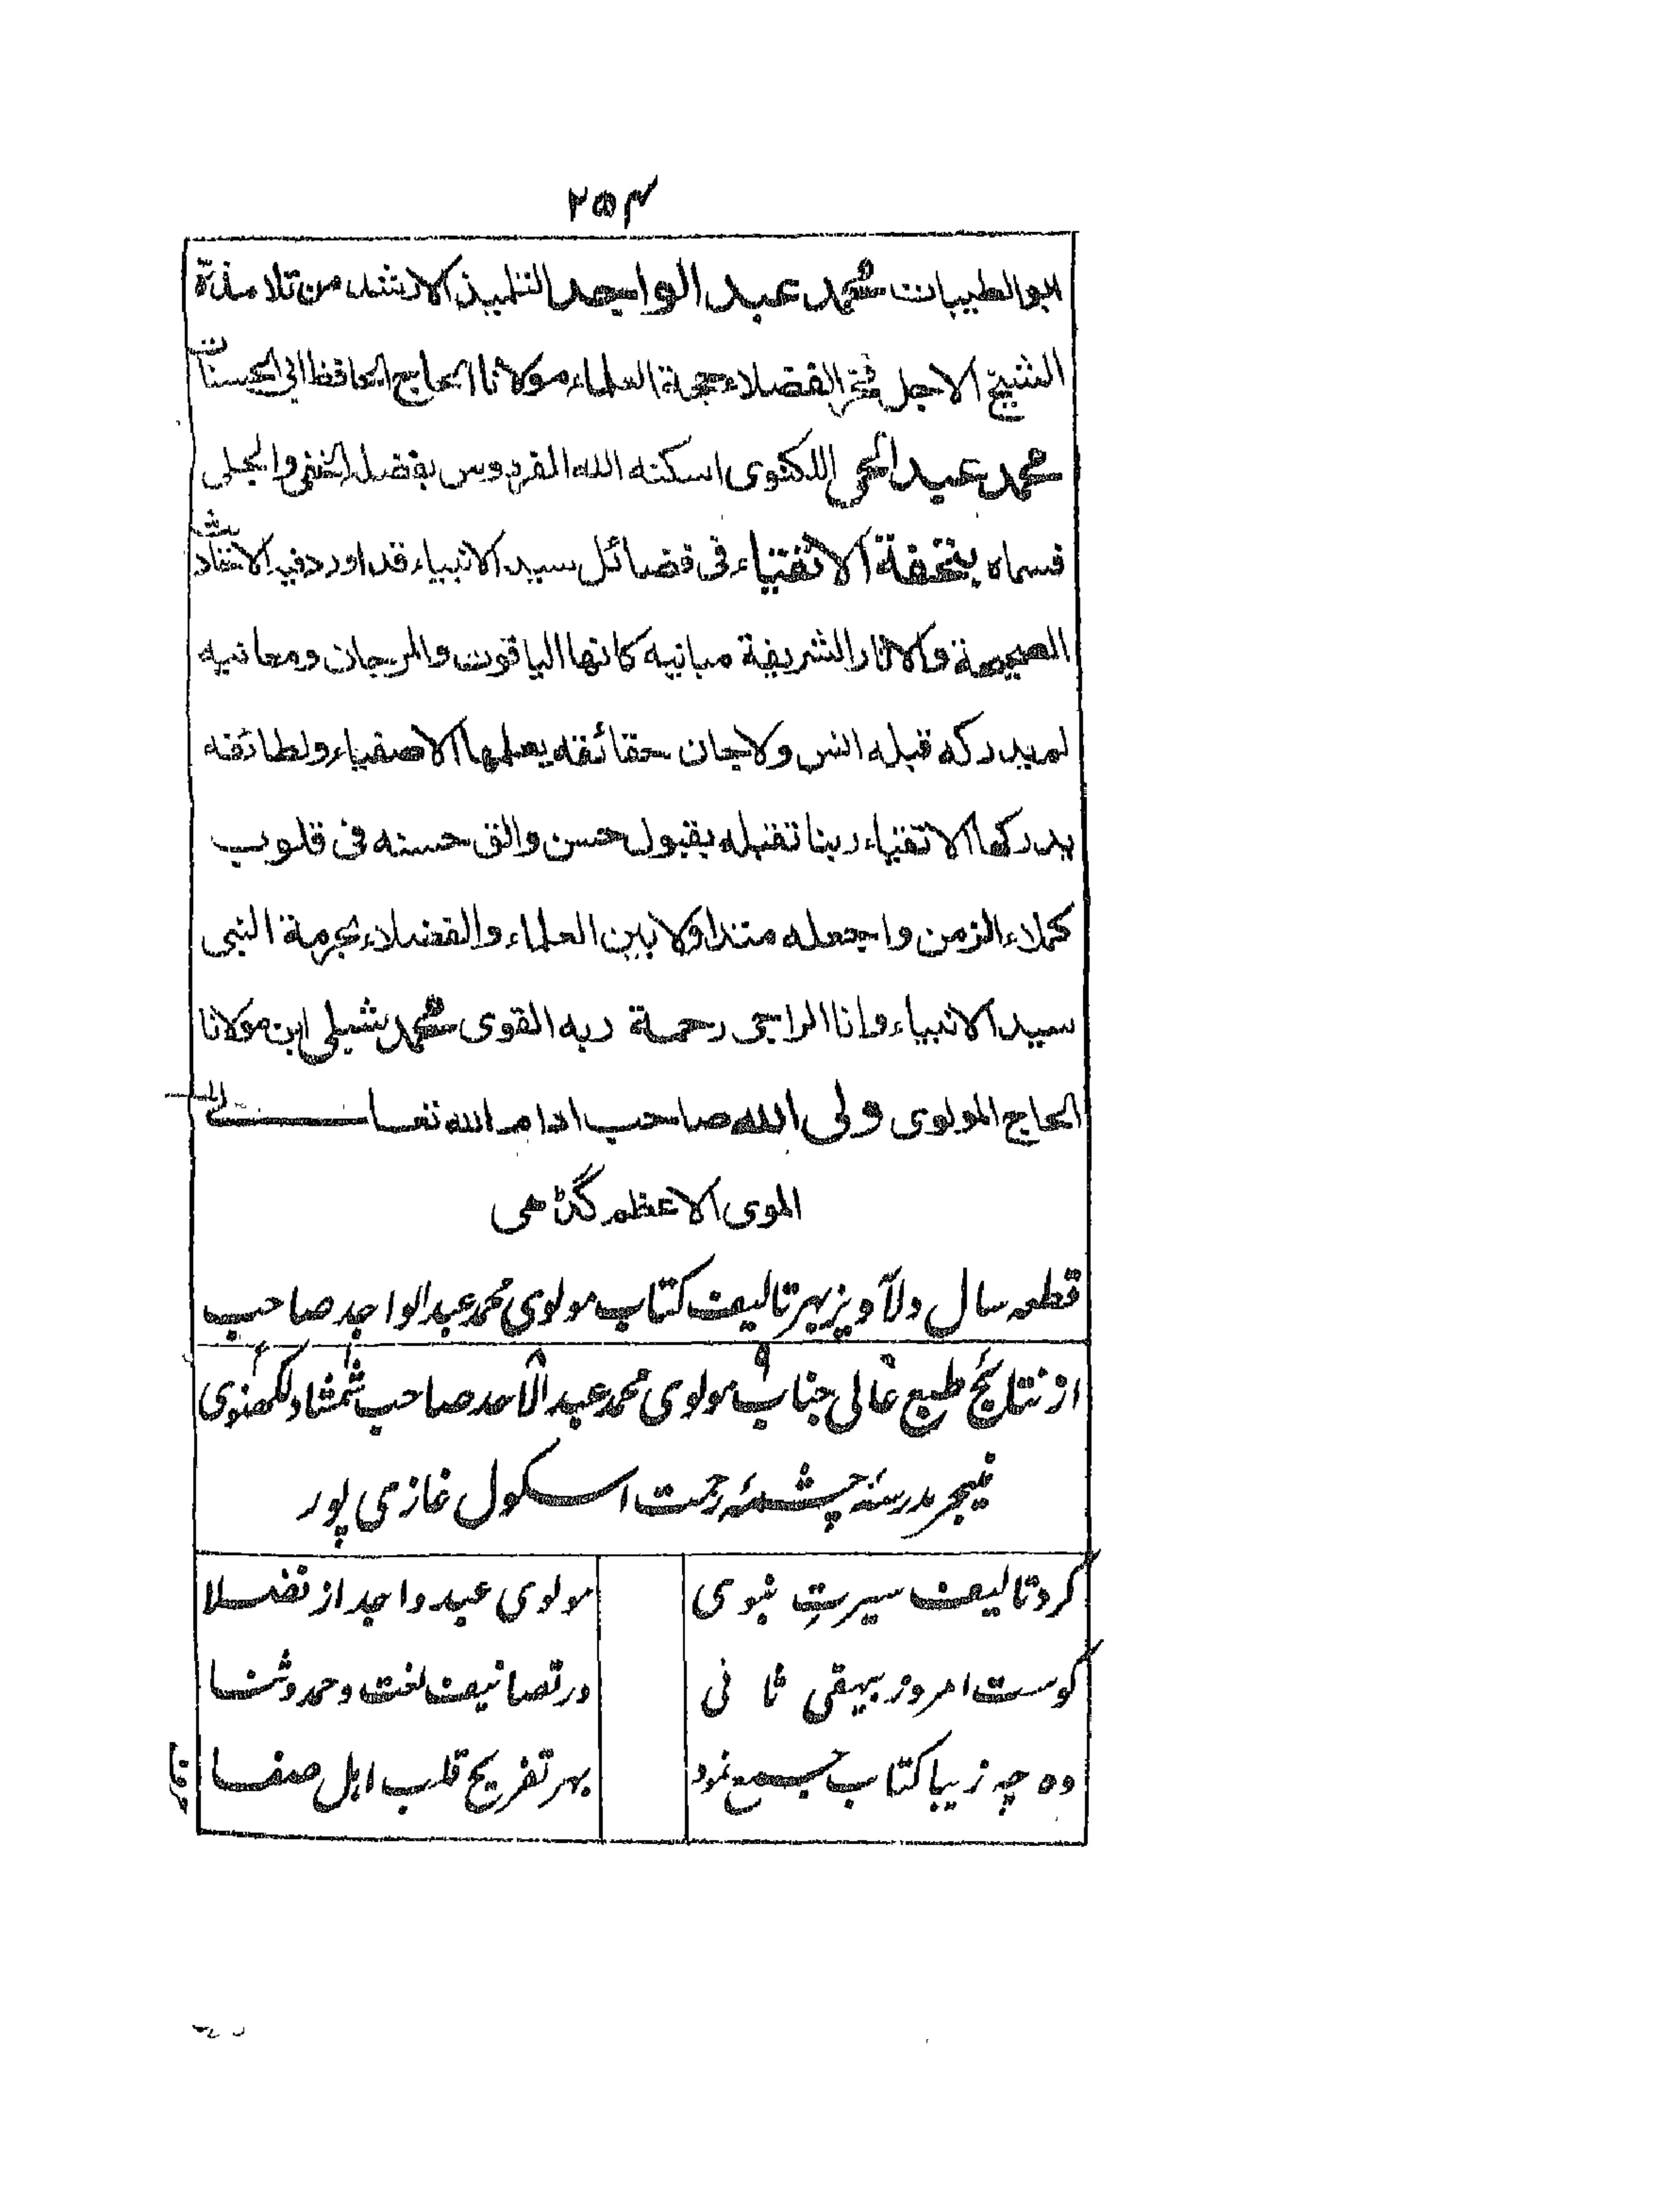 ۲۵۴
ابوالطیبات محمد عبد الواجد التلمیذ الارشد من تلامذة
الشیخ الاجل فخر الفضلاء حجة العلماء مولانا الحاج الحافظ ابی الحسنات
محمد عبد الحی اللکنوی اسکنه الله الفردوس بفضله الخفی والجلی
فسماه بتحفة الاتقیاء فی فضائل سید الانبیاء قد اورد فیه الاحادیث
الصحیحة والاثار الشریفة مبانیه کانها الیاقوت والمرجان ومعانیه
لم یدرکه قبله انس ولا جان حقائقه یعلمها الاصفیاء ولطائفه
یدرکها الاتقیاء ربنا تقبله بقبول حسن والق حسنه فی قلوب
کملاء الزمن واجعله متداولا بین العلماء والفضلاء بحرمة النبی
سید الانبیاء وانا الراجی رحمة ربه القوی محمد شبلی ابن مولانا
الحاج المولوی ولی الله صاحب ادام الله تعالی
الموی الاعظم گڈھی
قطعہ سال دلآویز بہر تالیف کتاب مولوی محمد عبد الواجد صاحب
از نتائج طبع عالی جناب مولوی محمد عبد الاحد صاحب شمشاد لکھنوی
منیجر مدرسہ چشمۂ رحمت اسکول غازی پور
کرد تالیف سیرتِ نبوی مولوی عبد واجد از فضلا
کوست امروز بیہقی ثانی در تصانیف نعت و حمد و ثنا
وہ چہ زیبا کتاب جمع نمود بہر تفریح قلب اہل صفا